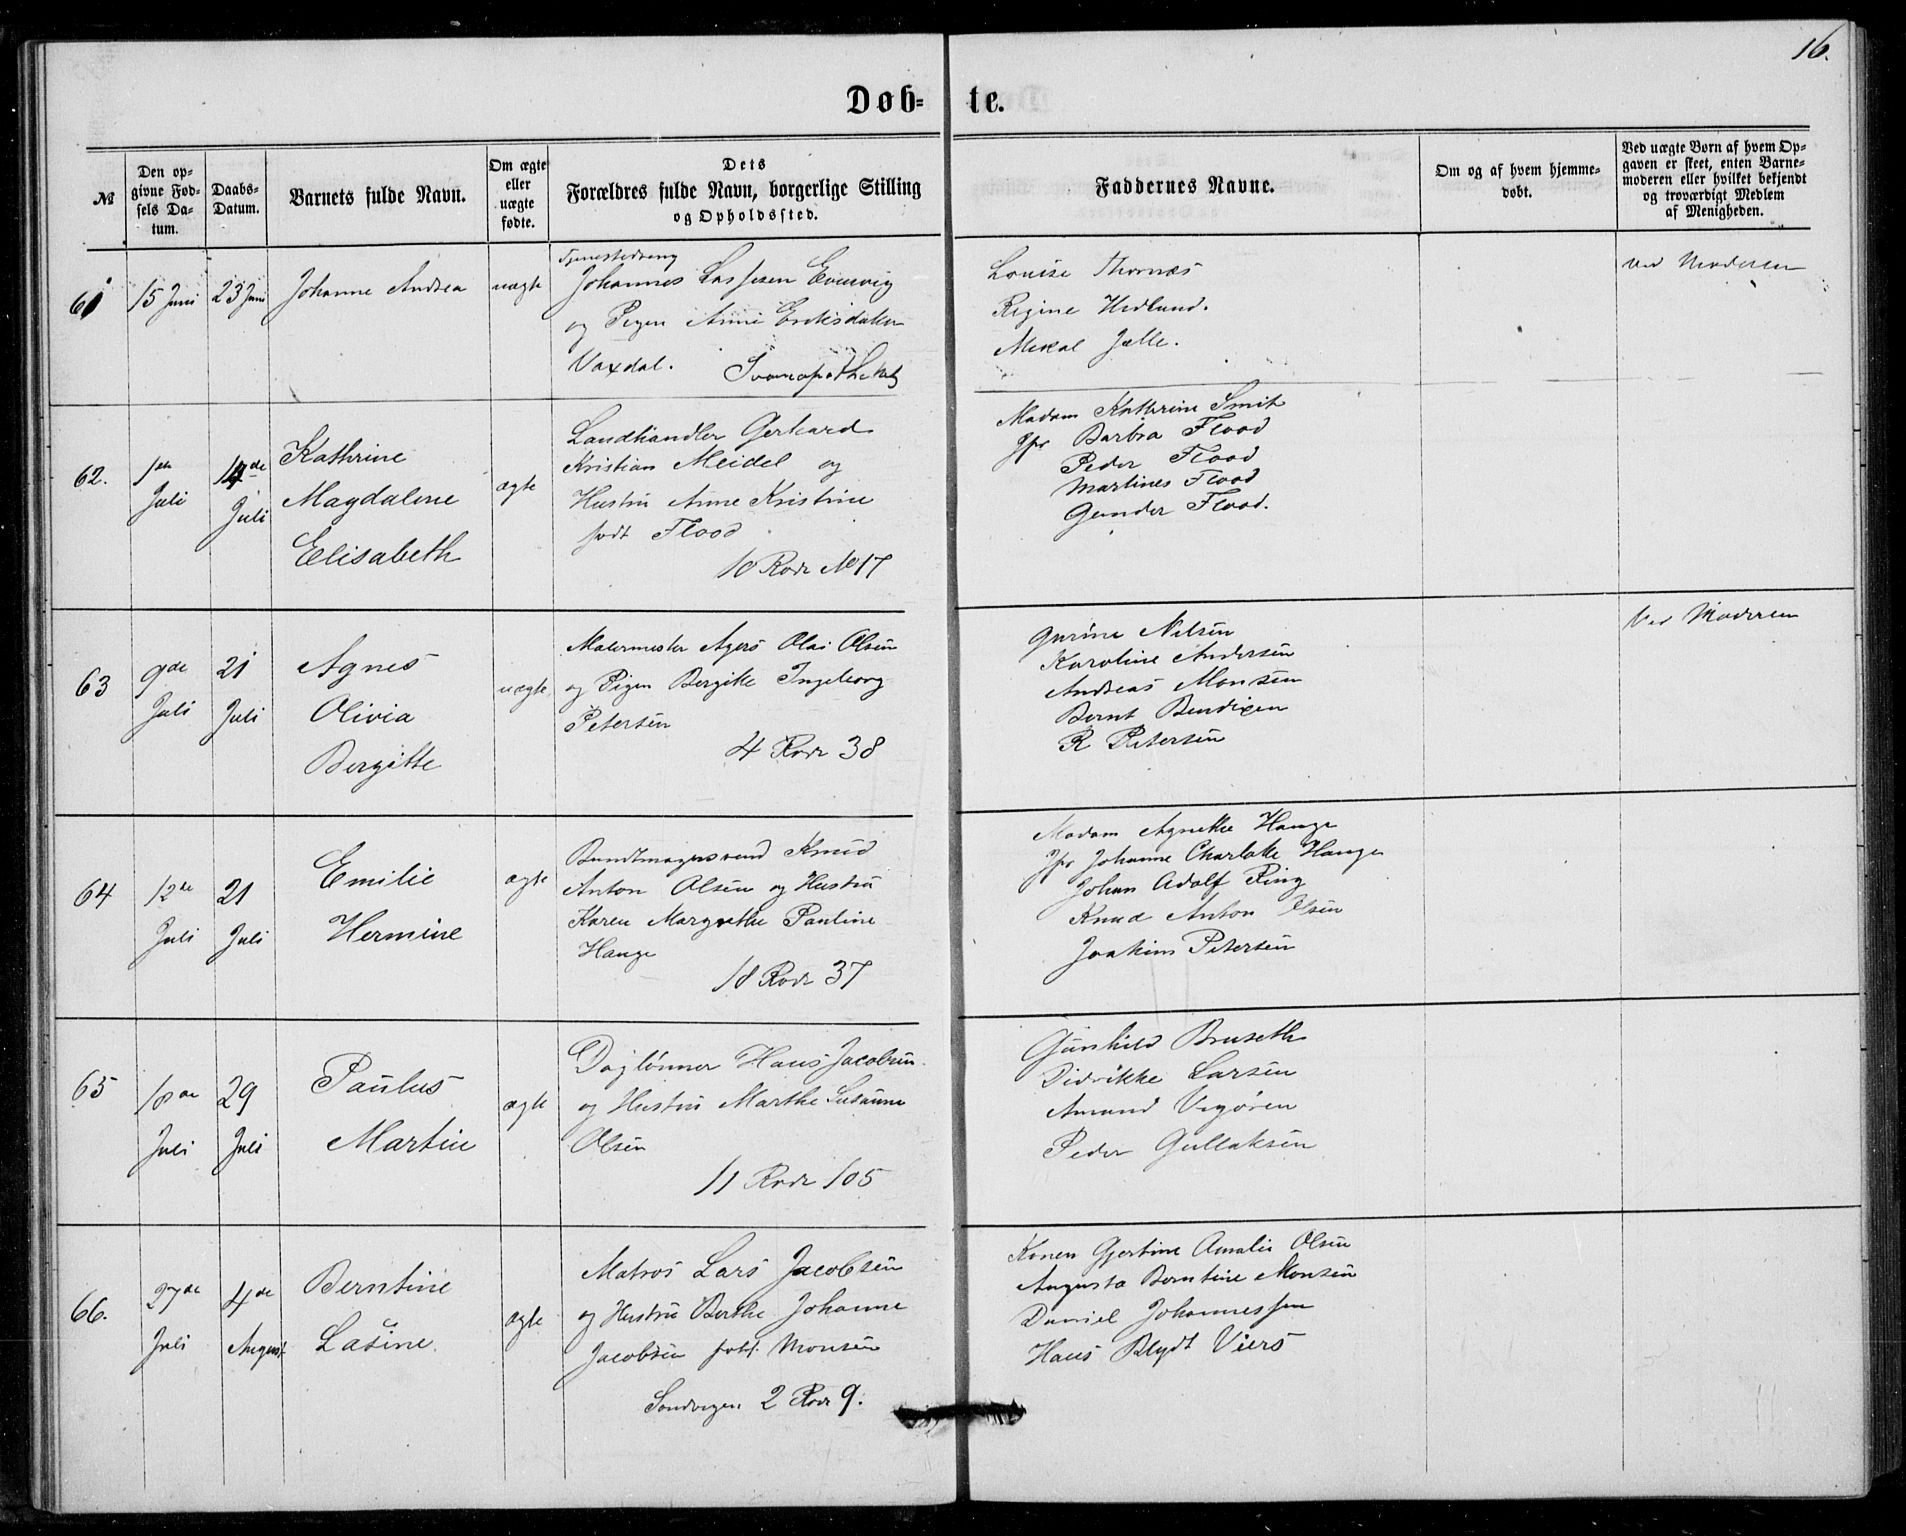 16.
Døb- te.
№
Den op-
givne Fød-
sels Da-
tum.
Daabs-
Datum.
Barnets fulde Navn.
Om ægte
eller
uægte
fødte.
Dets
Forældres fulde Navn, borgerlige Stilling
og Opholdssted.
Faddernes Navne.
Om og af hvem hjemme-
døbt.
Ved uægte Børn af hvem Op-
gaven er skeet, enten Barne-
moderen eller hvilket bekjendt
og troværdigt Medlem
af Menigheden.
61
15 Juni
23 Juni
Johanne Andrea
uægte
Tjenestedreng
Johannes Lassesen Evenvig
og Pigen Anne Eriksdatter
Vaxdal. Svaneapotheket
Louise Thornæs
Regine Hedlund.
Mikal Jelle.
Ved Moderen
62.
1ste
Juli
14de
Juli
Kathrine
Magdalene
Elisabeth
ægte
Landhandler Gerhard
Kristian Meidel og
Hustru Anne Kristine
født Flood
10 Rode No 17
Madam Kathrine Smit
Jfr Barbra Flood
Peder Flood
Martines Flood
Gunder Flood.
63
9de
Juli
21
Juli
Agnes
Olivia
Bergitte
uægte
Malermester Agers Olai Olsen
og Pigen Bergitte Ingeborg
Petersen
4 Rode 38
Gurine Nilsen
Karoline Andersen
Andreas Monsen
Bernt Bendixen
R Petersen
Ved Moderen
64
12te
Juli
21
Juli
Emilie
Hermine
ægte
Bundtmagersvend Knud
Anton Olsen og Hustru
Karen Margrethe Pauline
Hauge
18 Rode 37
Madam Agnethe Hauge
Jfr Johanne Charlotte Hauge
Johan Adolf Ring
Knud Anton Olsen
Joakim Petersen
65
18de
Juli
29
Juli
Paulus
Martin
ægte
Daglønner Hans Jacobsen
og Hustru Marthe Susanne
Olsen
11 Rode 105
Gunhild Bruseth
Didrikke Larsen
Amund Vegøren
Peder Gullaksen
66.
27de
Juli
4de
August
Berntine
Lasine.
ægte
Matros Lars Jacobsen
og Hustru Berthe Johanne
Jacobsen født Monsen
Sandvigen 2 Rode 9.
Konen Gjertine Amalie Olsen
Augusta Berntine Monsen
Daniel Johannessen
Hans Blydt Viers